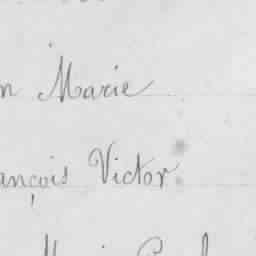 n Marie
ançois Victor